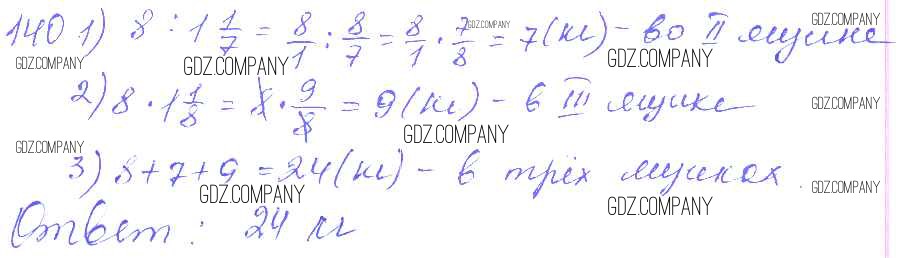 140 1) 8 : 1 1/7 = 8/1 : 8/7 = 8/1 · 7/8 = 7 (кг) – во II ящике
GDZ.COMPANY GDZ.COMPANY GDZ.COMPANY GDZ.COMPANY GDZ.COMPANY
2) 8 · 1 1/8 = 8 · 9/8 = 9 (кг) – в III ящике
GDZ.COMPANY GDZ.COMPANY
GDZ.COMPANY
3) 8 + 7 + 9 = 24 (кг) – в трёх ящиках.
GDZ.COMPANY GDZ.COMPANY GDZ.COMPANY
Ответ: 24 кг